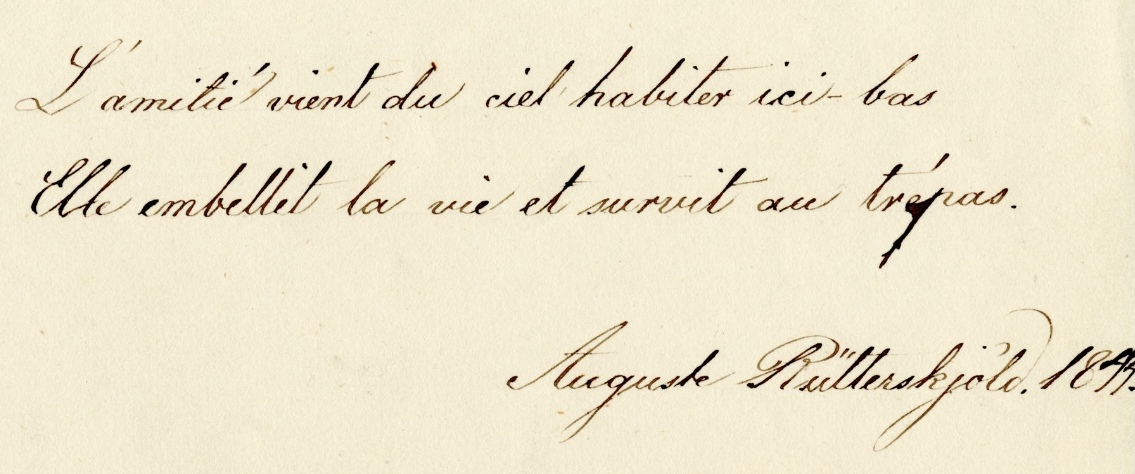 L'amitié vient du ciel habiter ici-bas
Elle embellit la vie et survit au trépas.
Auguste Rütterskjöld.